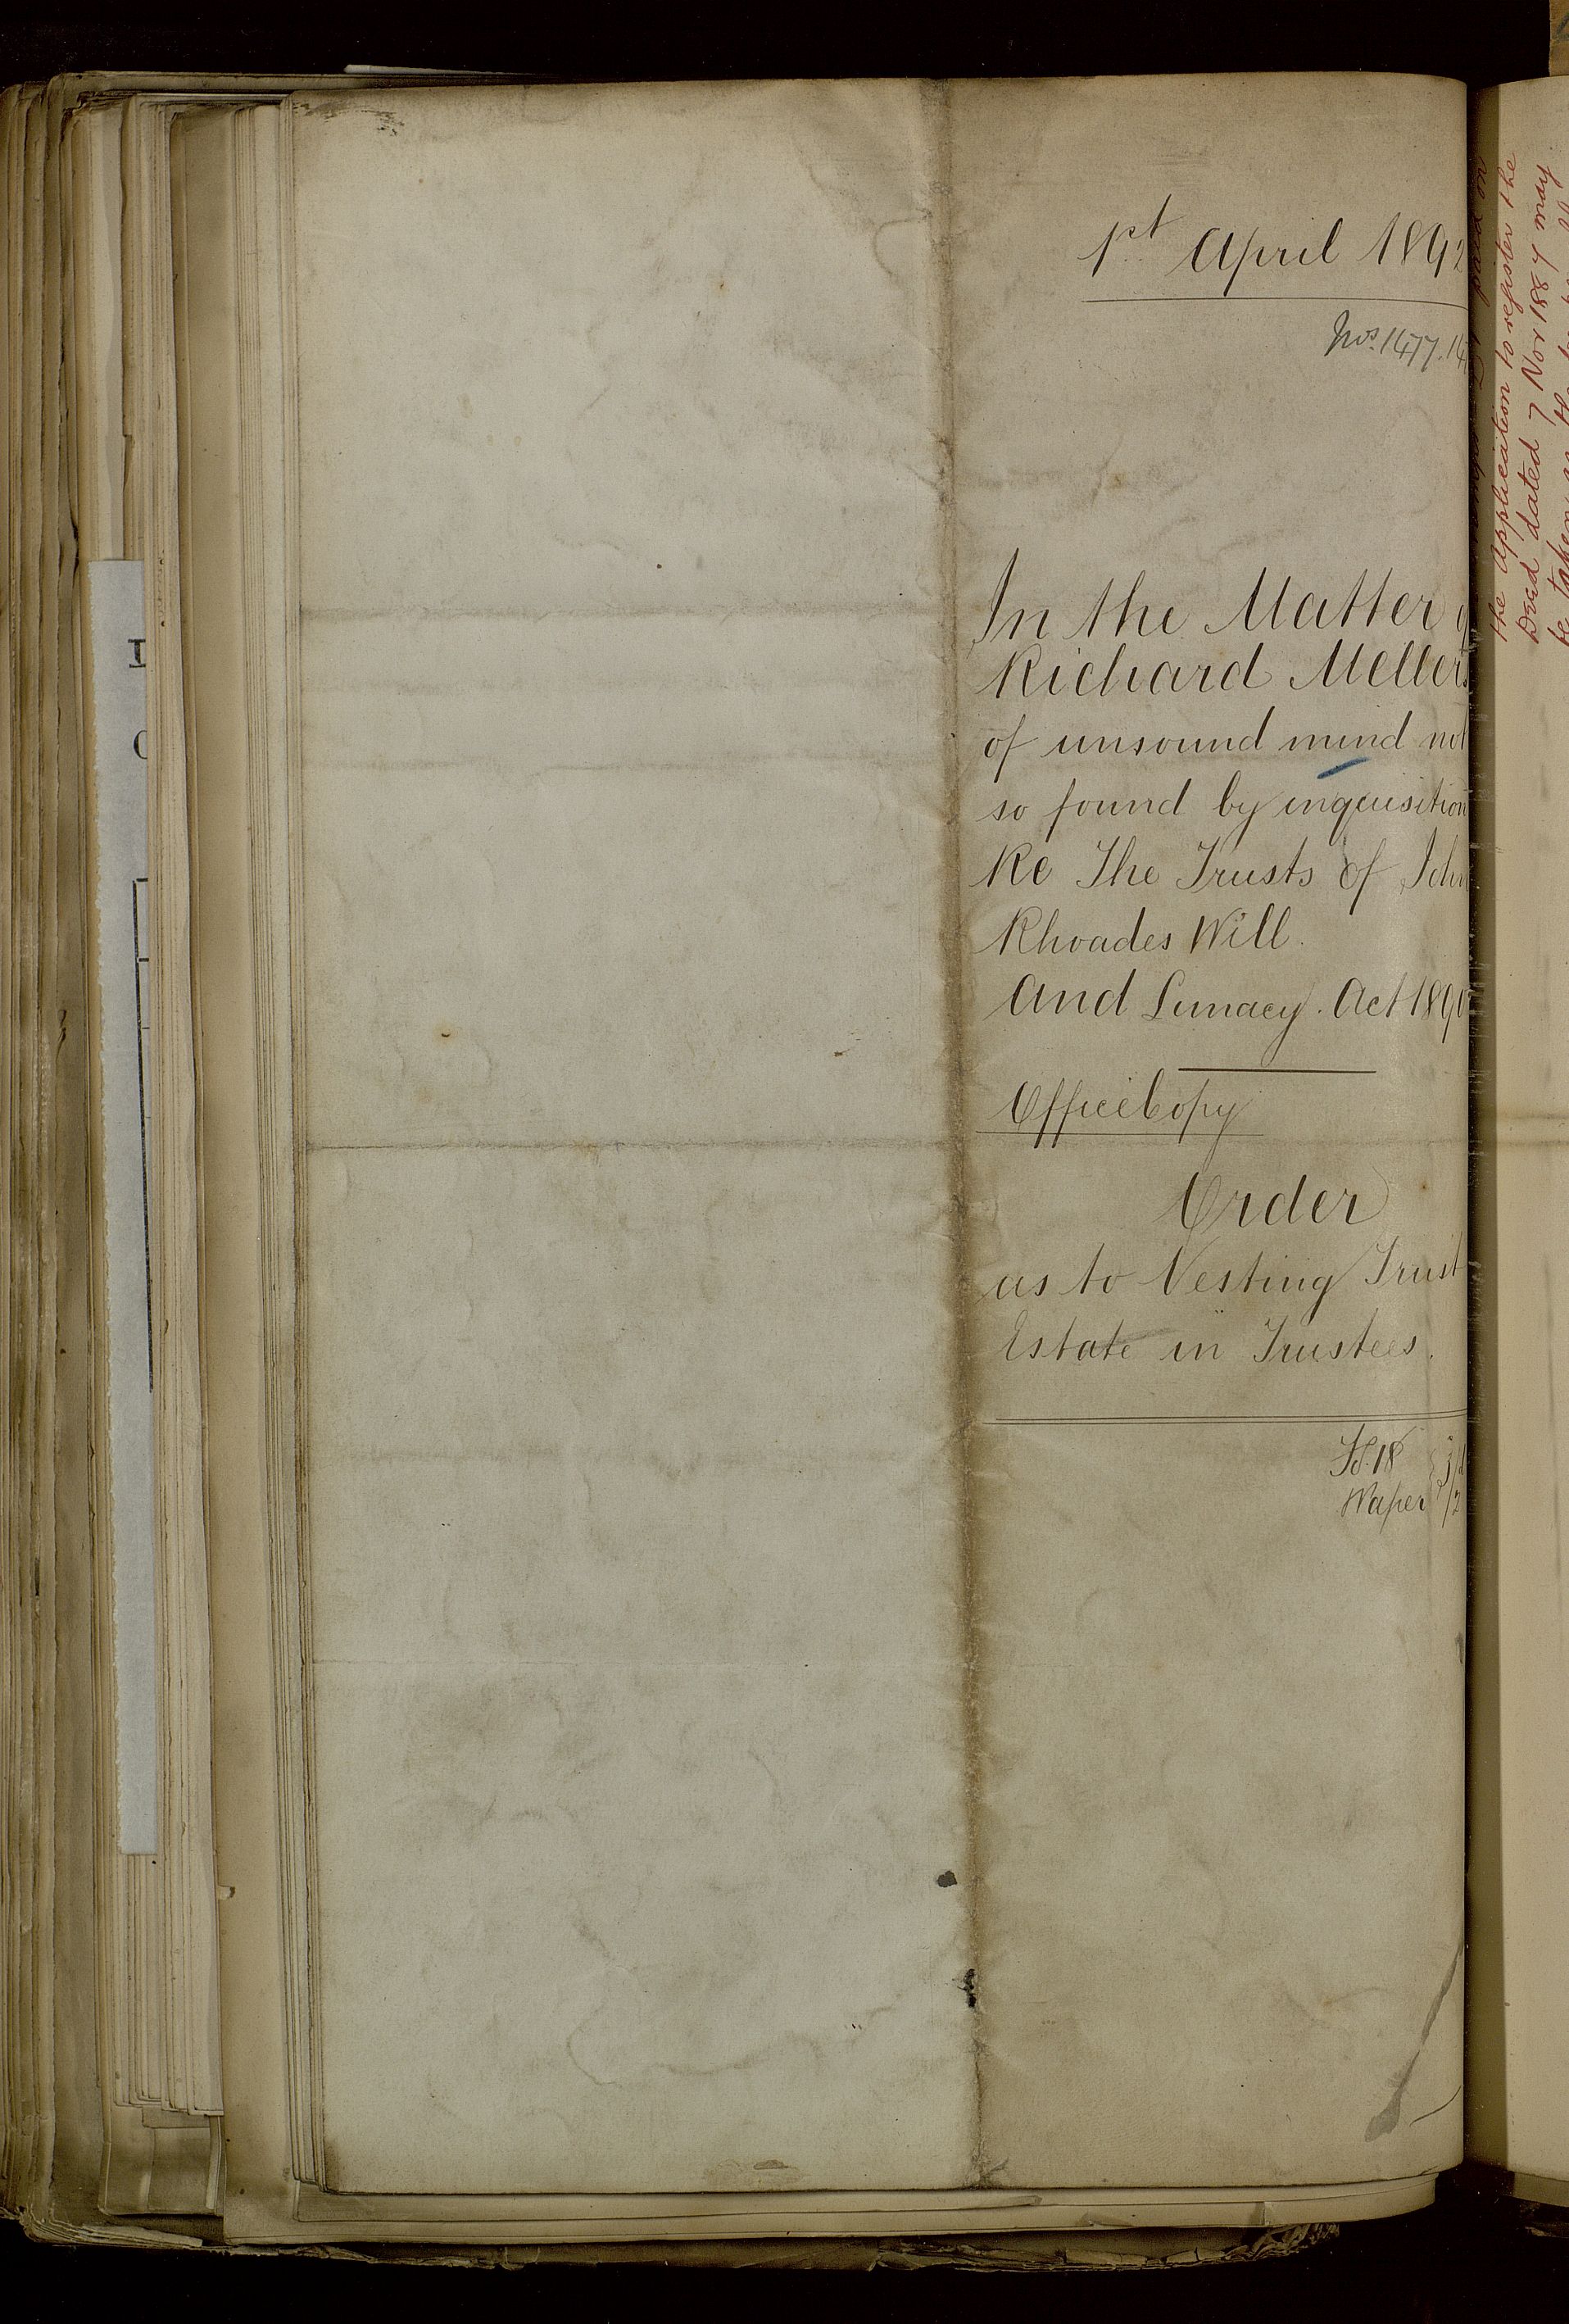 1st April 1892
Nos. 1477. 14
In the Matter of
Richard Mellers
of unsound mind not
so found by inquisition
Re The Trusts of John
Rhoades Will.
And Lunacy Act 1890
Office Copy
Order
as to Vesting Trust
Estate in Trustees.
Fs. 18
Wafer
paid on
the application to register the
Deed dated 7 Nov 1887 may
be taken as the